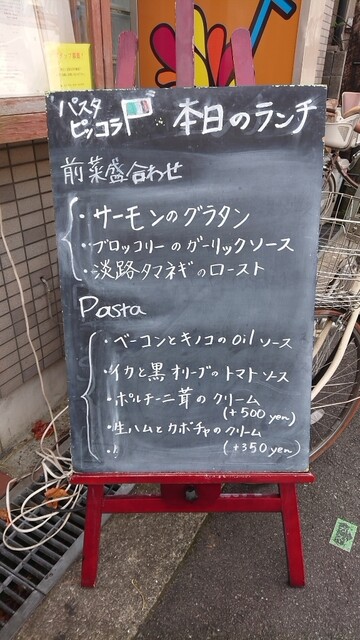 パスタ
ピッコラ
本日のランチ
前菜盛合わせ
・サーモンのグラタン
・ブロッコリーのガーリックソース
・淡路タマネギのロースト
Pasta
・ベーコンとキノコのoilソース
・イカと黒オリーブのトマトソース
・ポルチーニ茸のクリーム
(+500yen)
・生ハムとカボチャのクリーム
(+350yen)